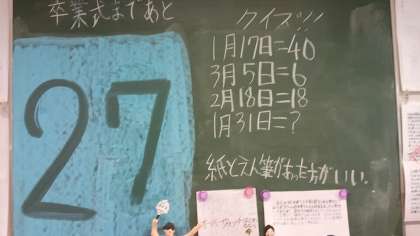 卒業式まであと
27
クイズ!!!
1月17日=40
3月5日=6
2月18日=18
1月31日=?
紙とえん筆があった方がいい。